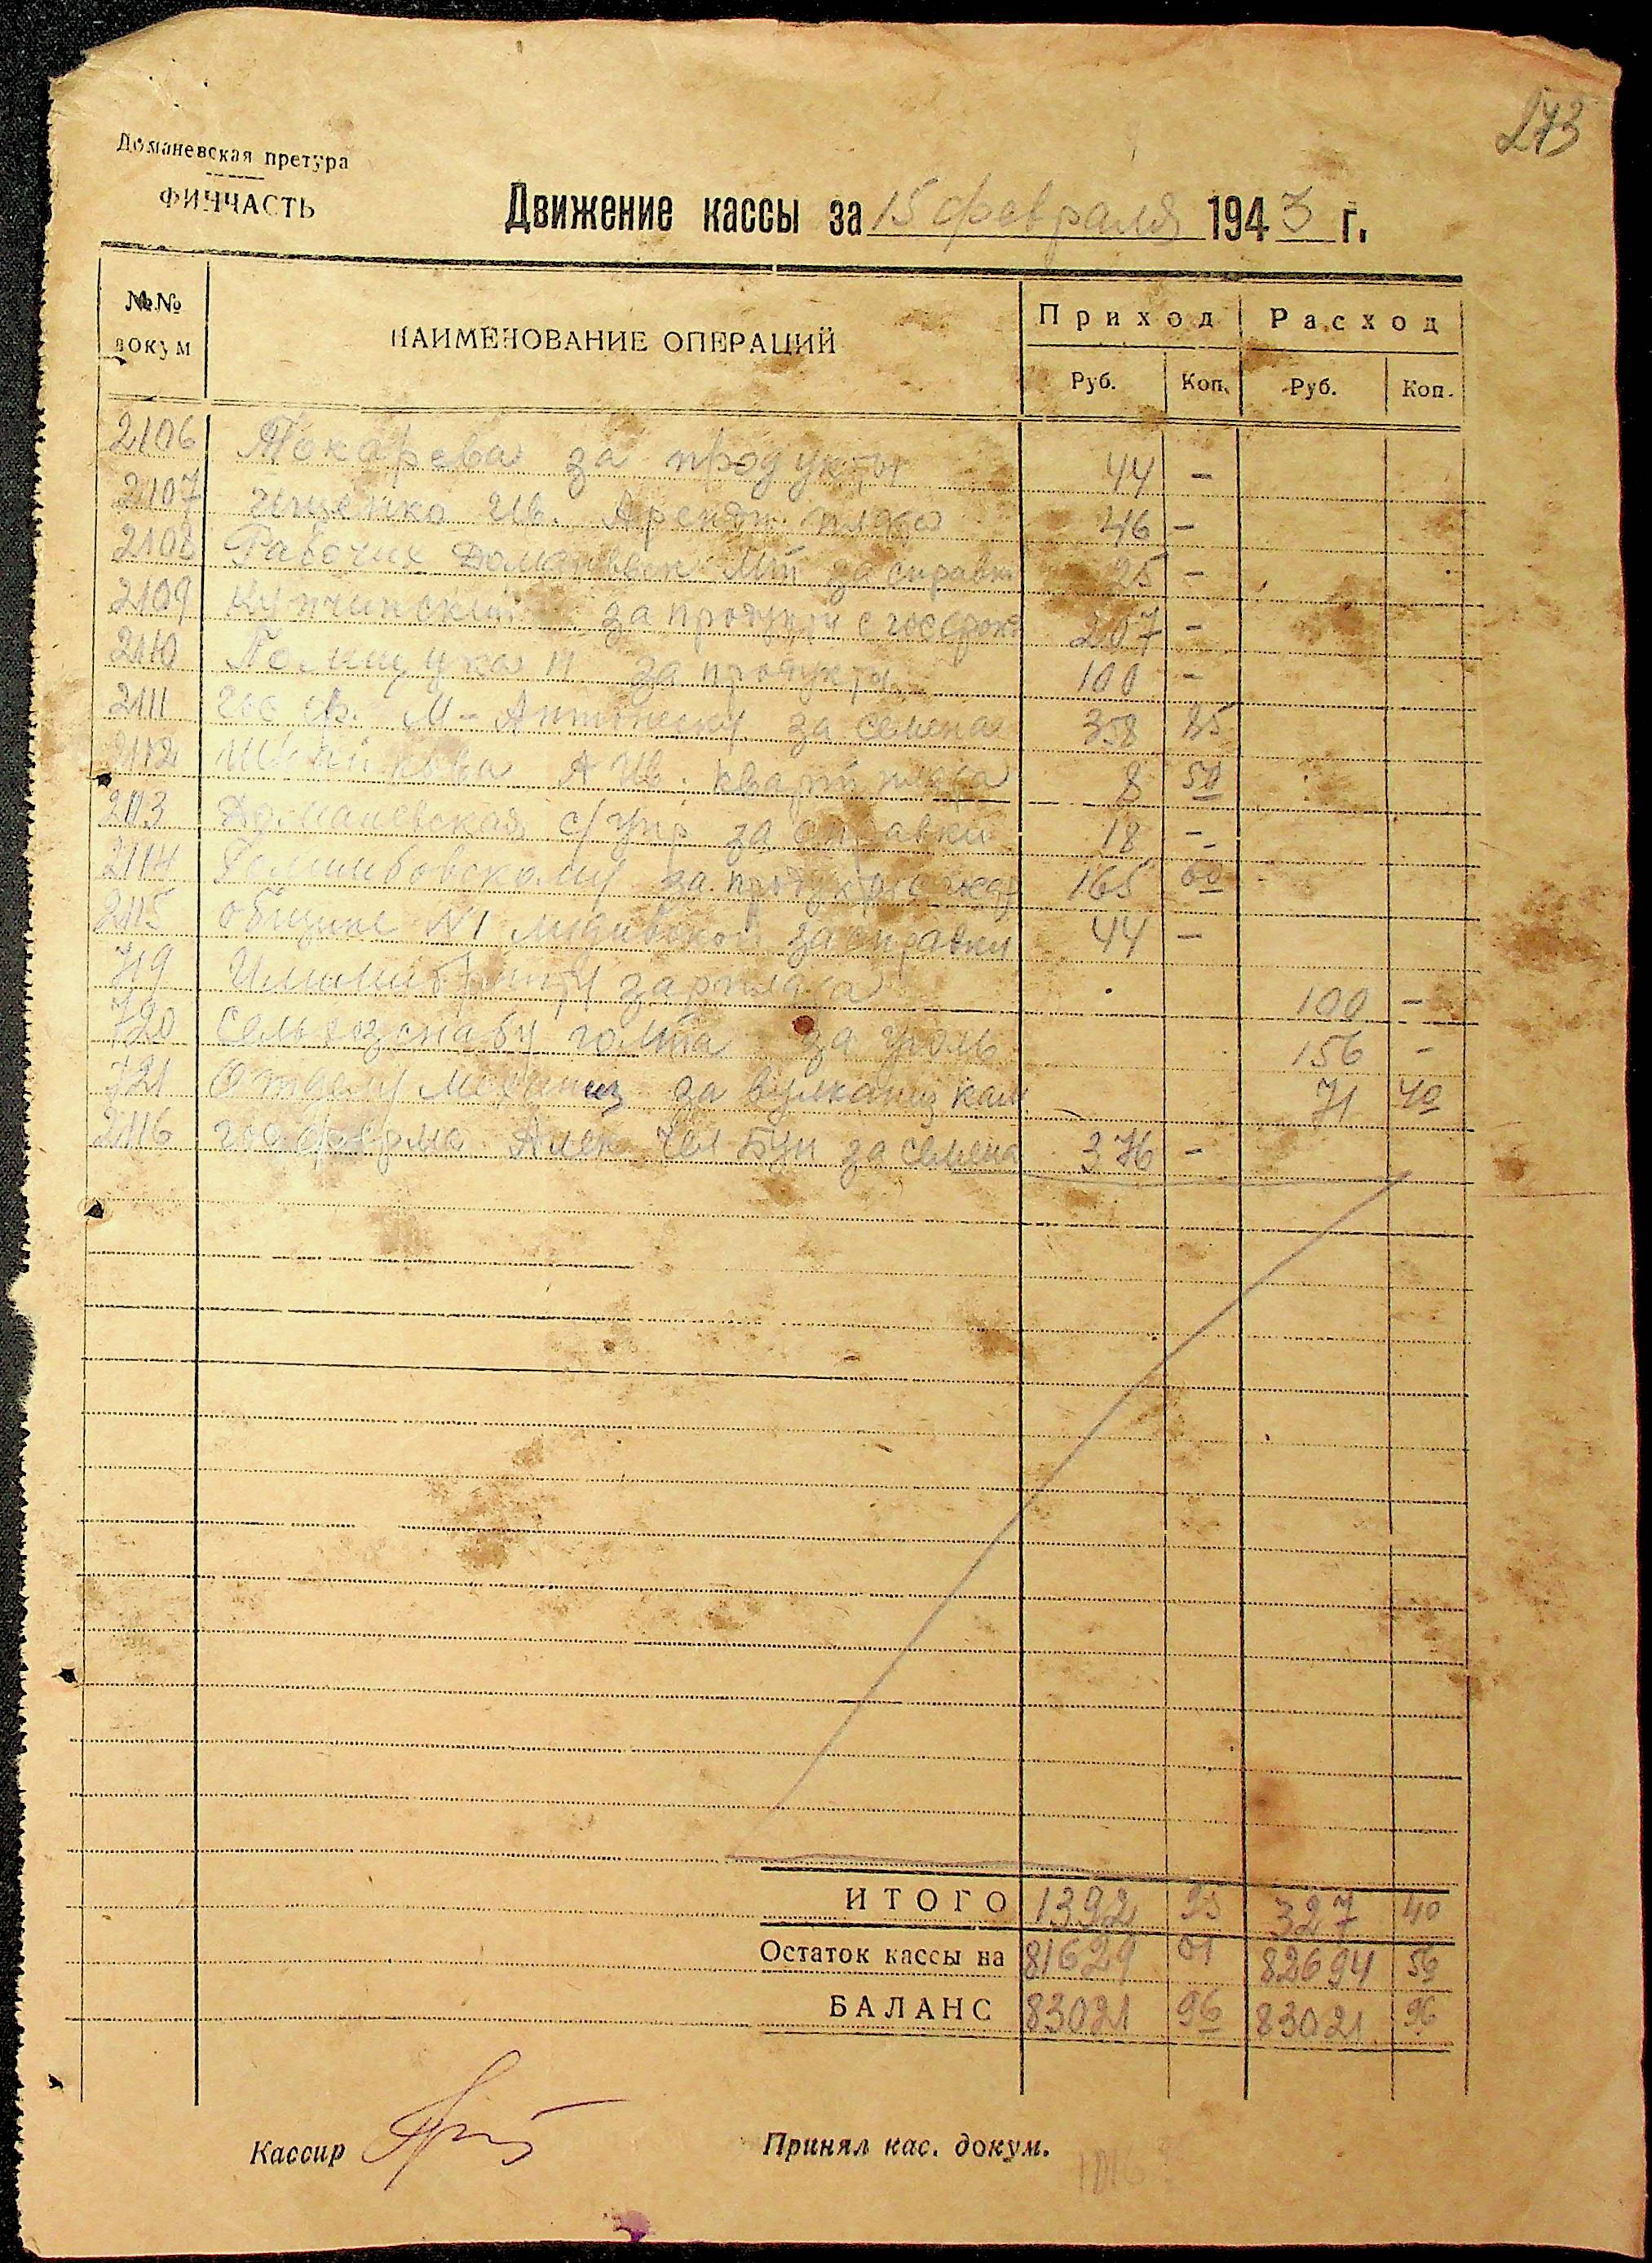 273
Доманевская претура
ФИНЧАСТЬ
Движение кассы за 15 февраля 1943 г.
№№ докум НАИМЕНОВАНИЕ ОПЕРАЦИЙ Приход Расход
Руб. Коп. Руб. Коп.
2106 Токарева за продукты 44 -
2107 Ищенко Ив. Арендн. плата 46 -
2108 Рабочих Доманевск за справк 25 -
2109 Купчинский за продукты с госферм 207 -
2110 Полищука П за продукты 100 -
2111 Гос ф. М-Антонеску за семена 358 85
2112 А Ив. кварт плата 8 50
2113 Доманевская с/упр за справки 18 -
2114 за продукты 165 60
2115 Общине №1 за справки 44 -
719 зарплата 100 -
720 Сельхозснабу Голта за уголь 156 -
721 Отделу Механиз за вулканиз кам 71 40
2116 госферма Алек Чел Бун за семена 376 -
ИТОГО 1392 95 327 40
Остаток кассы на 81629 01 82694 56
БАЛАНС 83021 96 83021 96
Кассир Принял кас. докум.